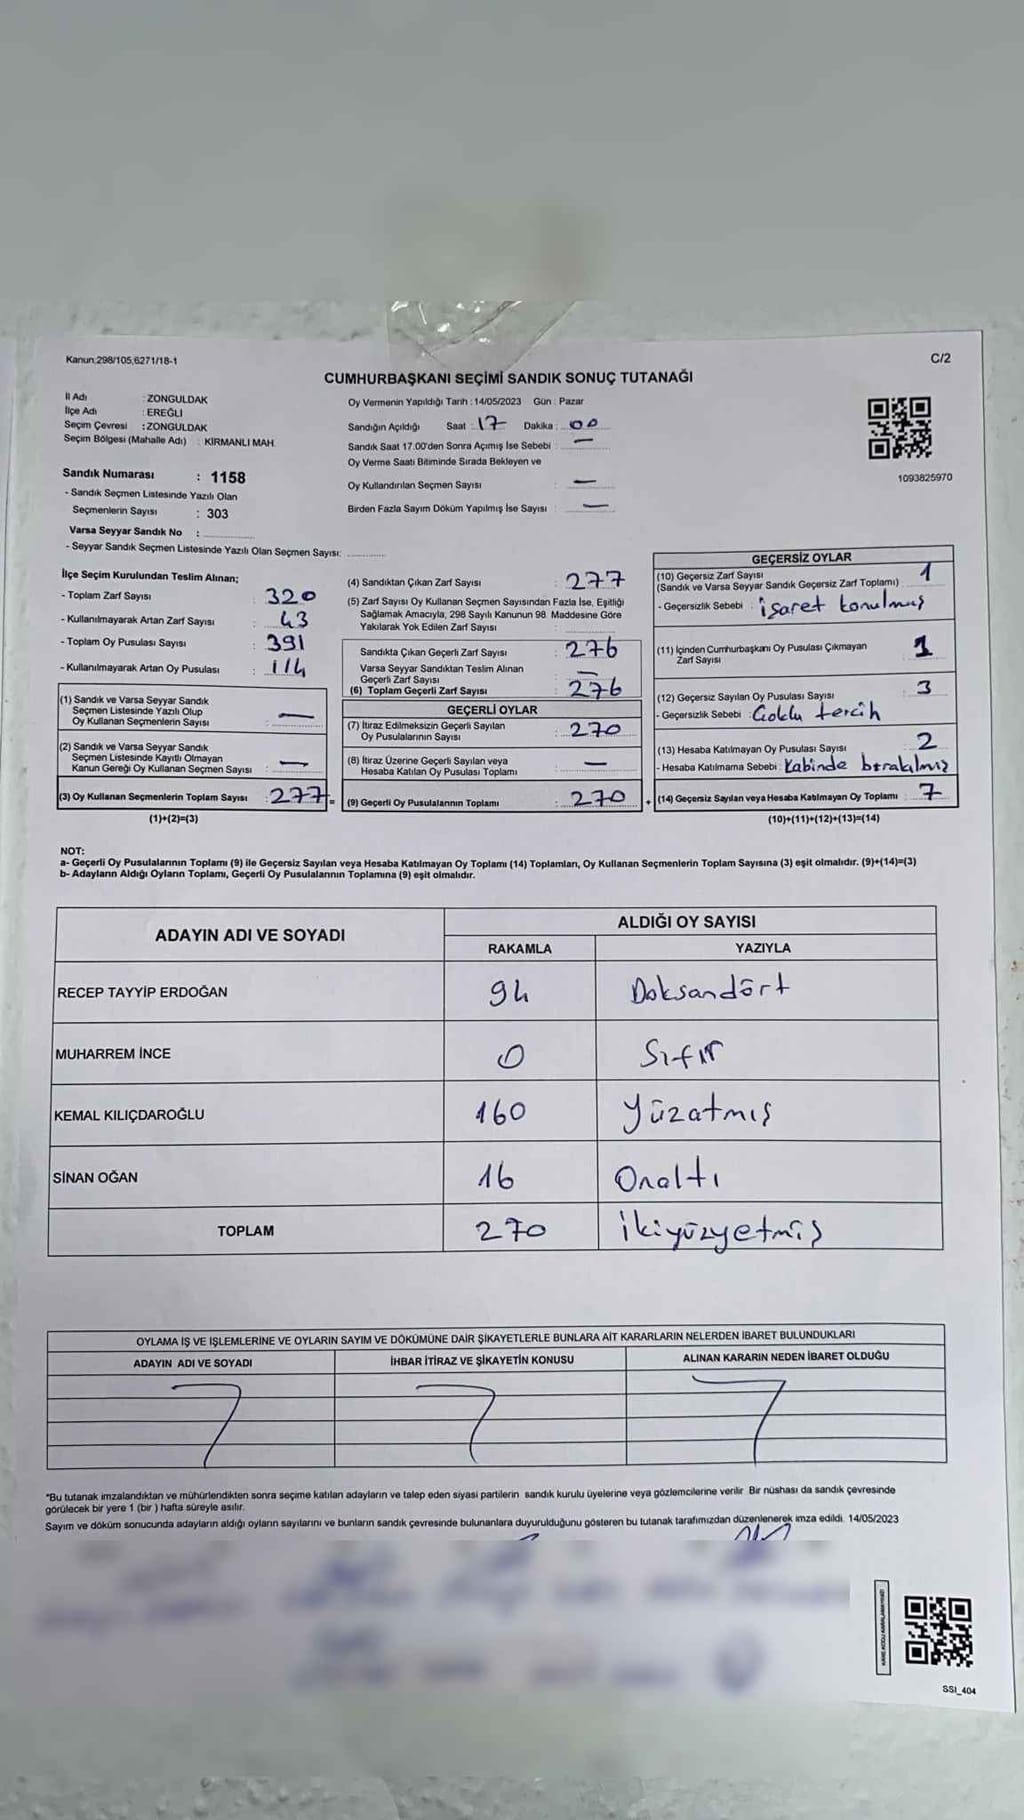 Kanun:298/105,6271/18-1
C/2
CUMHURBAŞKANI SEÇİMİ SANDIK SONUÇ TUTANAĞI
İl Adı : ZONGULDAK
İlçe Adı : EREĞLİ
Seçim Çevresi : ZONGULDAK
Seçim Bölgesi (Mahalle Adı) : KIRMANLI MAH.
Sandık Numarası : 1158
- Sandık Seçmen Listesinde Yazılı Olan
Seçmenlerin Sayısı : 303
Varsa Seyyar Sandık No :
- Seyyar Sandık Seçmen Listesinde Yazılı Olan Seçmen Sayısı:
Oy Vermenin Yapıldığı Tarih : 14/05/2023 Gün : Pazar
Sandığın Açıldığı Saat : 17 Dakika : 00
Sandık Saat 17.00'den Sonra Açımış İse Sebebi : —
Oy Verme Saati Bitiminde Sırada Bekleyen ve
Oy Kullandırılan Seçmen Sayısı : —
Birden Fazla Sayım Döküm Yapılmış İse Sayısı : —
1093825970
İlçe Seçim Kurulundan Teslim Alınan;
- Toplam Zarf Sayısı : 320
- Kullanılmayarak Artan Zarf Sayısı : 43
- Toplam Oy Pusulası Sayısı : 391
- Kullanılmayarak Artan Oy Pusulası : 114
(1) Sandık ve Varsa Seyyar Sandık
Seçmen Listesinde Yazılı Olup
Oy Kullanan Seçmenlerin Sayısı : —
(2) Sandık ve Varsa Seyyar Sandık
Seçmen Listesinde Kayıtlı Olmayan
Kanun Gereği Oy Kullanan Seçmen Sayısı : —
(3) Oy Kullanan Seçmenlerin Toplam Sayısı : 277 =
(1)+(2)=(3)
(4) Sandıktan Çıkan Zarf Sayısı : 277
(5) Zarf Sayısı Oy Kullanan Seçmen Sayısından Fazla İse, Eşitliği
Sağlamak Amacıyla, 298 Sayılı Kanunun 98. Maddesine Göre
Yakılarak Yok Edilen Zarf Sayısı :
Sandıkta Çıkan Geçerli Zarf Sayısı : 276
Varsa Seyyar Sandıktan Teslim Alınan
Geçerli Zarf Sayısı : —
(6) Toplam Geçerli Zarf Sayısı : 276
GEÇERLİ OYLAR
(7) İtiraz Edilmeksizin Geçerli Sayılan
Oy Pusulalarının Sayısı : 270
(8) İtiraz Üzerine Geçerli Sayılan veya
Hesaba Katılan Oy Pusulası Toplamı : —
(9) Geçerli Oy Pusulalarının Toplamı : 270 +
GEÇERSİZ OYLAR
(10) Geçersiz Zarf Sayısı
(Sandık ve Varsa Seyyar Sandık Geçersiz Zarf Toplamı) : 1
- Geçersizlik Sebebi : işaret konulmuş
(11) İçinden Cumhurbaşkanı Oy Pusulası Çıkmayan
Zarf Sayısı : 1
(12) Geçersiz Sayılan Oy Pusulası Sayısı : 3
- Geçersizlik Sebebi : Çoklu tercih
(13) Hesaba Katılmayan Oy Pusulası Sayısı : 2
- Hesaba Katılmama Sebebi : Kabinde bırakılmış
(14) Geçersiz Sayılan veya Hesaba Katılmayan Oy Toplamı : 7
(10)+(11)+(12)+(13)=(14)
NOT:
a- Geçerli Oy Pusulalarının Toplamı (9) ile Geçersiz Sayılan veya Hesaba Katılmayan Oy Toplamı (14) Toplamları, Oy Kullanan Seçmenlerin Toplam Sayısına (3) eşit olmalıdır. (9)+(14)=(3)
b- Adayların Aldığı Oyların Toplamı, Geçerli Oy Pusulalarının Toplamına (9) eşit olmalıdır.
ADAYIN ADI VE SOYADI
ALDIĞI OY SAYISI
RAKAMLA YAZIYLA
RECEP TAYYİP ERDOĞAN 94 Doksandört
MUHARREM İNCE 0 Sıfır
KEMAL KILIÇDAROĞLU 160 Yüzatmış
SİNAN OĞAN 16 Onaltı
TOPLAM 270 ikiyüzyetmiş
OYLAMA İŞ VE İŞLEMLERİNE VE OYLARIN SAYIM VE DÖKÜMÜNE DAİR ŞİKAYETLERLE BUNLARA AİT KARARLARIN NELERDEN İBARET BULUNDUKLARI
ADAYIN ADI VE SOYADI İHBAR İTİRAZ VE ŞİKAYETİN KONUSU ALINAN KARARIN NEDEN İBARET OLDUĞU
*Bu tutanak imzalandıktan ve mühürlendikten sonra seçime katılan adayların ve talep eden siyasi partilerin sandık kurulu üyelerine veya gözlemcilerine verilir. Bir nüshası da sandık çevresinde
görülecek bir yere 1 (bir ) hafta süreyle asılır.
Sayım ve döküm sonucunda adayların aldığı oyların sayılarını ve bunların sandık çevresinde bulunanlara duyurulduğunu gösteren bu tutanak tarafımızdan düzenlenerek imza edildi. 14/05/2023
SSI_404